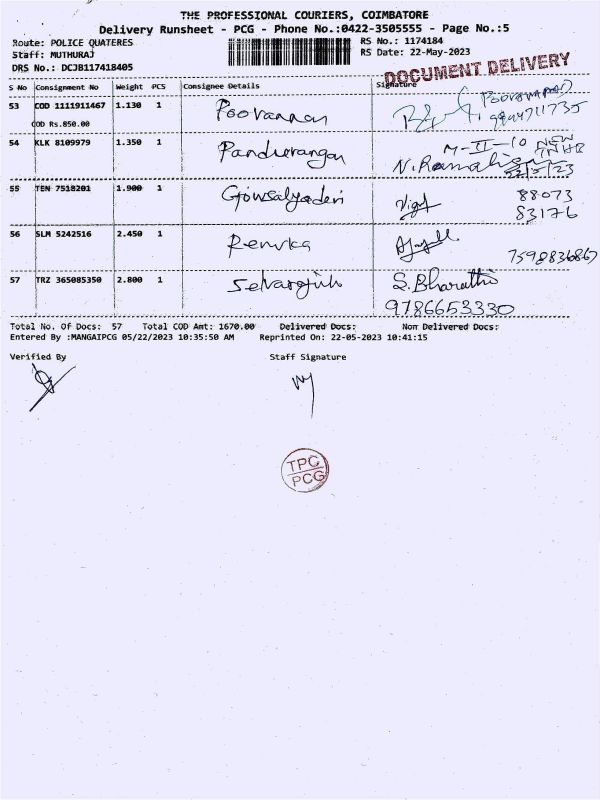 THE PROFESSIONAL COURIERS, COIMBATORE
Delivery Runsheet - PCG - Phone No.:0422-3505555 - Page No.:5
Route: POLICE QUATERES RS No.: 1174184
Staff: MUTHURAJ RS Date: 22-May-2023
DRS No.: DCJB117418405 DOCUMENT DELIVERY
S No Consignment No Weight PCS Consignee Details Signature
53 COD 1111911467 1.130 1 Poovannan Poovannan
COD Rs.850.00
54 KLK 8109979 1.350 1 Pandurangan M-II-10
22/5/23
55 TEN 7518201 1.900 1 Gowsalyadevi 88073
83176
56 SLM 5242516 2.450 1 Renuka 7598836867
57 TRZ 365085350 2.800 1 S.Bharathi
9786653330
Total No. Of Docs: 57 Total COD Amt: 1670.00 Delivered Docs: Non Delivered Docs:
Entered By :MANGAIPCG 05/22/2023 10:35:50 AM Reprinted On: 22-05-2023 10:41:15
Verified By Staff Signature
TPC
PCG